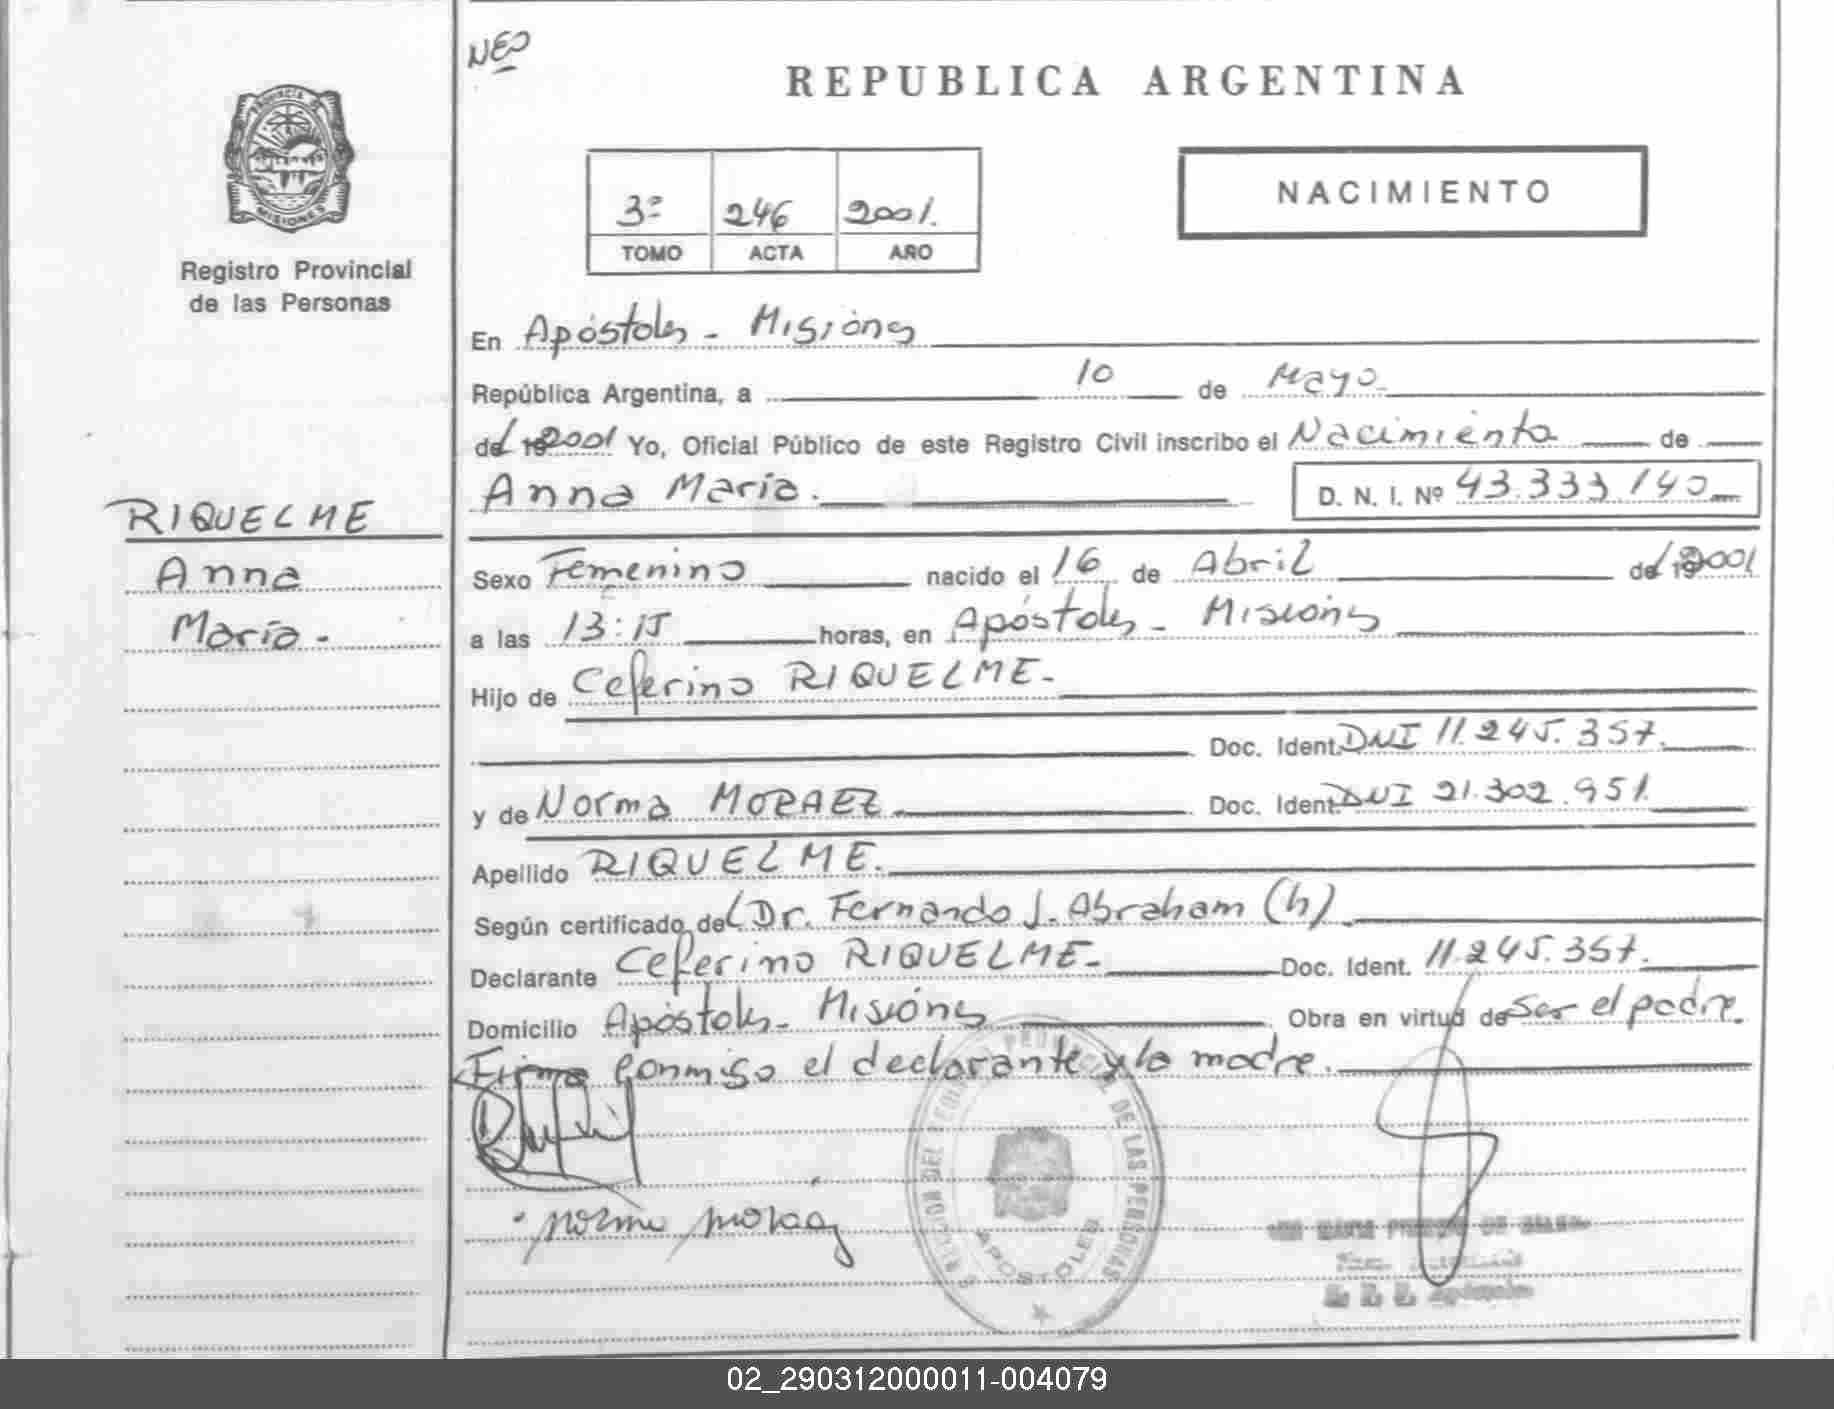 NEO
REPUBLICA ARGENTINA
PROVINCIA DE
MISIONES
Registro Provincial
de las Personas
3º 246 2001.
TOMO ACTA AÑO
NACIMIENTO
En Apóstoles - Misiones
República Argentina, a 10 de Mayo
del 2001 Yo, Oficial Público de este Registro Civil inscribo el Nacimiento de
Anna Maria. D. N. I. Nº 43.333.140
RIQUELME
Anna
Maria.-
Sexo Femenino nacido el 16 de Abril del 2001
a las 13:15 horas, en Apóstoles - Misiones
Hijo de Ceferino RIQUELME.-
Doc. Ident. DNI 11.245.357.
y de Norma MORAEZ Doc. Ident. DNI 21.302.951.
Apellido RIQUELME.
Según certificado del Dr. Fernando J. Abraham (h)
Declarante Ceferino RIQUELME.- Doc. Ident. 11.245.357.
Domicilio Apóstoles - Misiones Obra en virtud de ser el padre.
Firma conmigo el declarante y la madre.
PROVINCIAL DE LAS PERSONAS
APOSTOLES
02_290312000011-004079